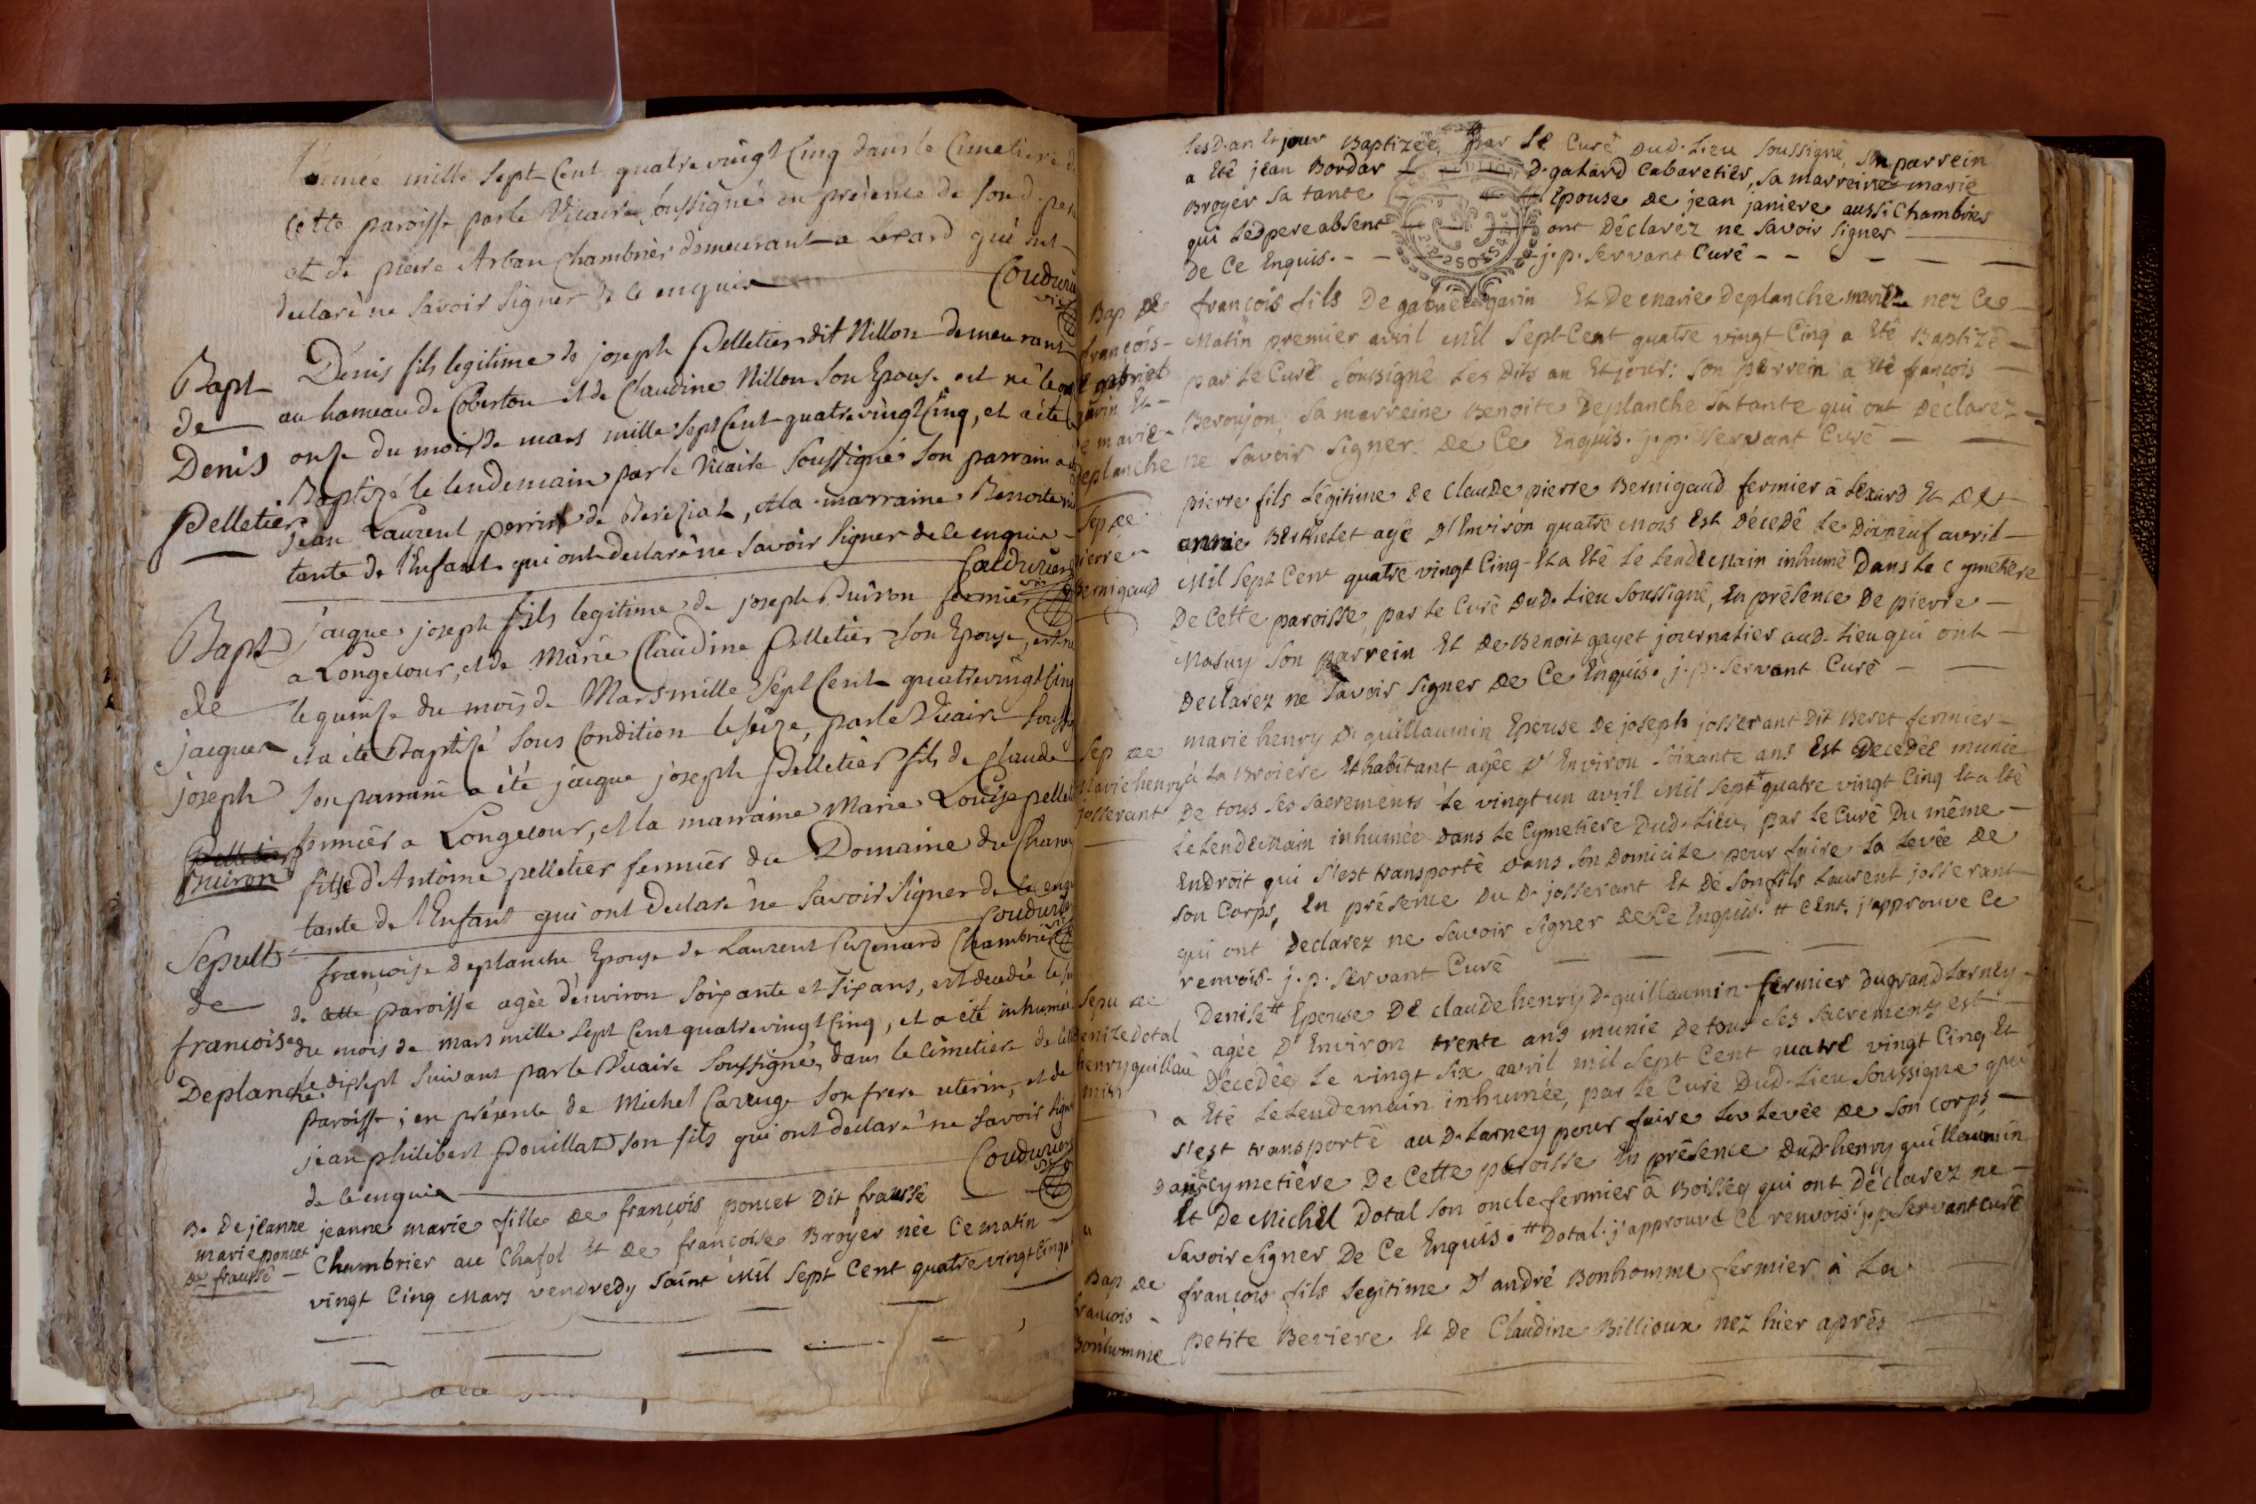 l'annee mille sept Cent quatre vingt Cinq dans le Cimetiere de
Cette paroisse par le Vicaire soussigné en présence de son d. pere
et de pierre Arban Chambrier demeurant a Lexard qui ont
declaré ne savoir signer de ce enquis
Coudurier
Bapt
de
Denis
Pelletier
Denis fils legitime de joseph Pelletier dit Nillon demeurant
au hameau de Coberton et de Claudine Nillon son Epouse est né le
onze du mois de mars mille sept Cent quatre vingt Cinq, et a été
Baptizé le lendemain par le Vicaire soussigné son parrain a
jean Laurent perrin de Bereziat, et la marraine Benoite
tante de l'Enfant qui ont declaré ne savoir signer de ce enquis
Coudurier
Bapt
de
jacques
joseph
Pelletier
Buiron
jaque joseph fils legitime de joseph Buiron fermier
a Longecour, et de Marie Claudine Pelletier son Epouse, est né
le quinze du mois de Mars mille sept Cent quatre vingt Cinq
et a été Baptizé sous Condition le seize, par le Vicaire
son parrain a été jaque joseph Pelletier fils de Claude
fermier a Longecour, et la marraine Marie Louise pelletier
fille d'Antoine pelletier fermier du Domaine du
tante de l'Enfant qui ont declaré ne savoir signer de ce enquis
Coudurier
Sepult
de
francoise
Deplanche
françoise Deplanche Epouse de Laurent Cuzenard Chambrier
de Cette paroisse agée d'environ soixante et six ans, est decedée le
du mois de mars mille sept Cent quatre vingt Cinq, et a été inhumée
le dixsept suivant par le Vicaire soussigné, dans le Cimetiere de
paroisse; en présence de Michel Caruge son frere uterin, et de
jean philibert Pouillat son fils qui ont declaré ne savoir signer
de ce enquis
Coudurier
B. De jeanne
marie poncet
Dit fraussé
jeanne marie fille De françois poncet Dit fraussé
Chambrier au Chafol Et De françoise Broyer née Ce matin
vingt Cinq Mars vendredy saint Mil Sept Cent quatre vingt Cinq
lesd. an Et jour Baptizée par Le Curé Dud. Lieu Soussigné, son parrein
a Eté jean Bordar D. galard Cabaretier, sa marreine marie
Broyer sa tante Epouse De jean janiere aussi Chambrier
qui Led pere absent ont Déclarez ne savoir signer
De Ce Enquis. j. p. Servant Curé
Bap De
françois
gabriel
garin Et
De marie
Deplanche
françois fils De gabriel garin Et De marie Deplanche mariez nez Ce
Matin premier avril Mil Sept Cent quatre vingt Cinq a Eté Baptizé
par Le Curé Soussigné Les Dits an Et jour: son parrein a Eté françois
Beroujon, Sa marreine Benoite Deplanche Sa tante qui ont Déclarez
ne savoir signer De Ce Enquis. j. p. Servant Curé
Sep De
pierre
Bernigaud
pierre fils Légitime De claude pierre Bernigaud fermier á Lexard Et De
annie Berthelet agé D'Environ quatre mois Est Décedé Le Dixneuf avril
Mil Sept Cent quatre vingt Cinq Et a Eté Le Lendemain inhumé Dans Le cymetiere
De Cette paroisse, par Le Curé Dud. Lieu Soussigné, En présence De pierre
Masuy son parrein Et De Benoit gayet journalier aud. Lieu qui ont
Declarez ne savoir signer De Ce Enquis. j. p. Servant Curé
Sep De
Marie henry
josserant
marie henry D. guillaumin Epouse De joseph josserant Dit Beret fermier
à La Broiere Et habitant agée D'Environ soixante ans Est Decedée munie
De tous ses sacrements Le vingt un avril Mil Sept # quatre vingt Cinq Et a Eté
Le Lendemain inhumée Dans Le Cymetiere Dud. Lieu, par Le Curé Du même
Endroit qui s'est transporté Dans son Domicile pour faire La Levée De
son Corps, En présence Du D. josserant Et De son fils Laurent josserant
qui ont Declarez ne savoir signer De Ce Enquis. # Cent. j'approuve Ce
renvois. j. p. Servant Curé
Sepu De
Denize Dotal
henry guillau
min
Denise # Epouse De claude henry D. guillaumin fermier Du grand Larney
agée D'Environ trente ans munie De tous ses sacrements est
Décedée Le vingt six avril mil Sept Cent quatre vingt Cinq Et
a Eté Le Lendemain inhumée, par Le Curé Dud. Lieu Soussigné qui
s'est transporté au D. Larney pour faire La Levée De son corps
Dans Le cymetiere De Cette paroisse En présence Dud. henry guillaumin
Et De Michel Dotal son oncle fermier à Boissey qui ont Déclarez ne
savoir signer De Ce Enquis. # Dotal. j'approuve Ce renvois. j. p. Servant curé
Bap De
françois
Bonhomme
françois fils Légitime D'andré Bonhomme fermier à La
petite Beviere Et De Claudine Billioux nez hier aprés